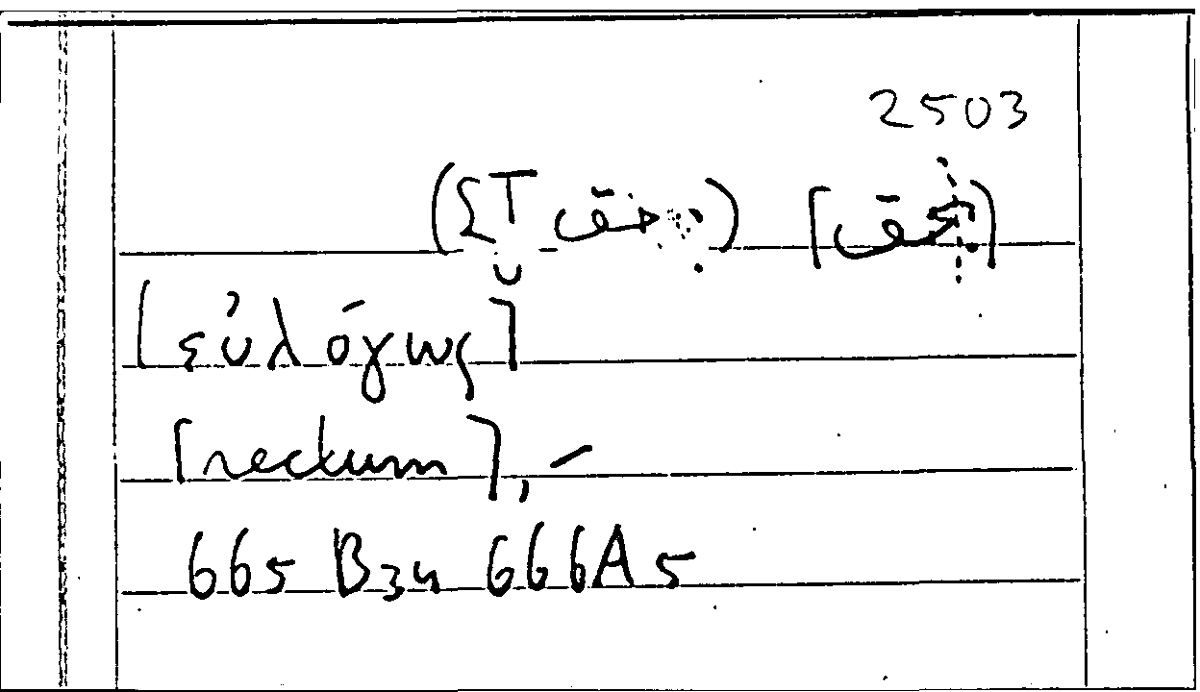 2503
[بحق] (بحق ΣT)
[εὐλόγως]
[rectum], –
665 B34 666A5